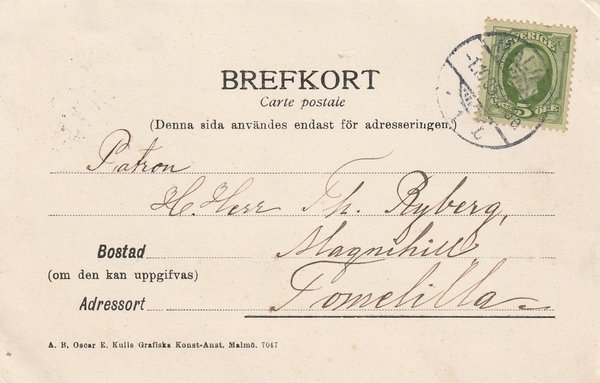 SVERIGE
5 ÖRE
BREFKORT
Carte postale
(Denna sida användes endast för adresseringen.)
Patron
H. Herr Th. Ryberg,
Bostad Magnihill
(om den kan uppgifvas)
Adressort Tomelilla
A. B. Oscar E. Kulls Grafiska Konst-Anst. Malmö. 7047